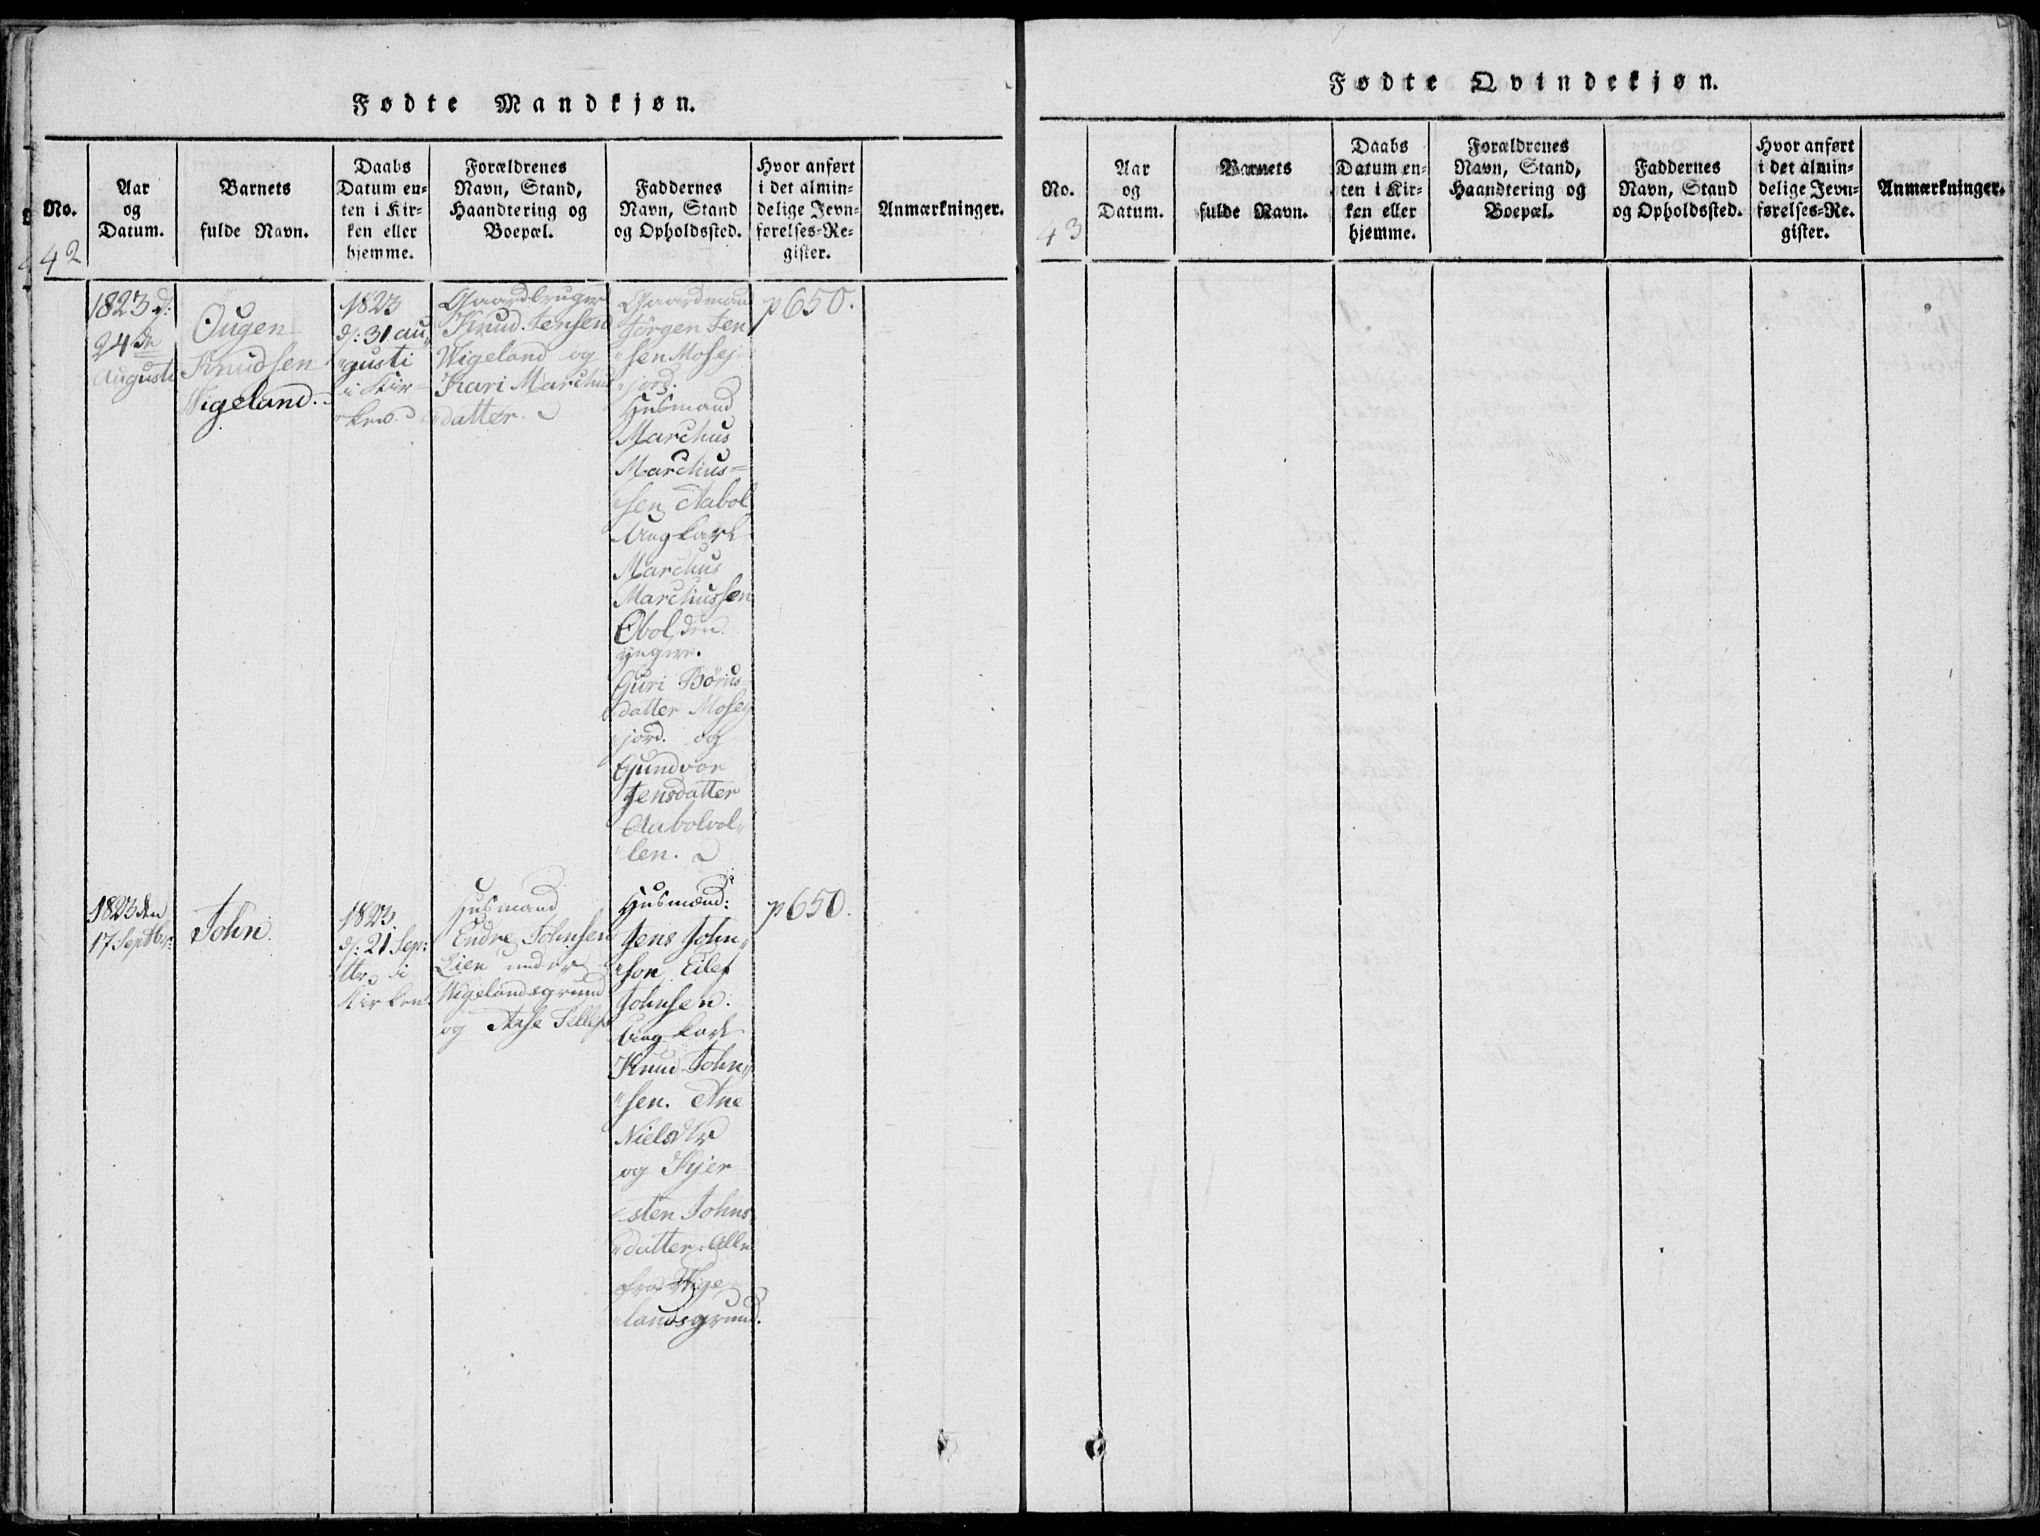 Fødte Mandkjøn.
No.
Aar
og
Datum.
Barnets
fulde Navn.
Daabs
Datum en-
ten i Kir-
ken eller
hjemme.
Forældrenes
Navn, Stand,
Haandtering og
Boepæl.
Faddernes
Navn, Stand
og Opholdssted.
Hvor anført
i det almin-
delige Jevn-
førelses-Re-
gister.
Anmærkninger.
42
1823 d:
24de
Augusti
Ougen
Knudsen
Wigeland.
1823
d: 31 au„
„gusti
i Kir-
„ken
Gaardbruger
Knud Jensen
Wigeland og
Kari Marchus
„datter.
Gaardmand
Jörgen Jen
„sen Mosej
„jord.
Husmand
Marchus
Marchus=
„sen Aabol
Ungkarl
Marchus
Marchussen
Obol den
yngere.
Guri Börus
datter Mosej
„jord. og
Gundvor
Jensdatter
Aabolvol„
„len.
p 650.
1823 den
17 Septbr:
John.
1823
d: 21 Sep:
tbr i
Kirken
Husmand
Endre Johnsen
Lien under
Wigelandsgrund
og Anse Tellefs
Husmænd:
Jens John„
„son Eilef
Johnsen.
Ungkarl
Knud John„
„sen. Ane
Nielsdtr
og Kjer
„sten Johns
„datter: Alle
fra Wige
„landsgrund.
p 650.
Fødte Qvindekjøn.
No.
Aar
og
Datum.
Barnets
fulde Navn.
Daabs
Datum en-
ten i Kir-
ken eller
hjemme.
Forældrenes
Navn, Stand,
Haandtering og
Boepæl.
Faddernes
Navn, Stand
og Opholdssted.
Hvor anført
i det almin-
delige Jevn-
førelses-Re-
gister.
Anmærkninger.
43